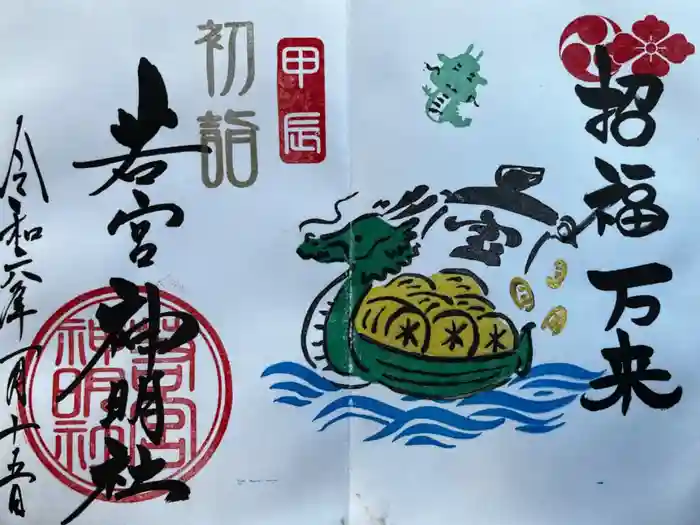 招福万来
宝
甲辰
初詣
若宮神明社
若宮神明社
令和六年一月十五日